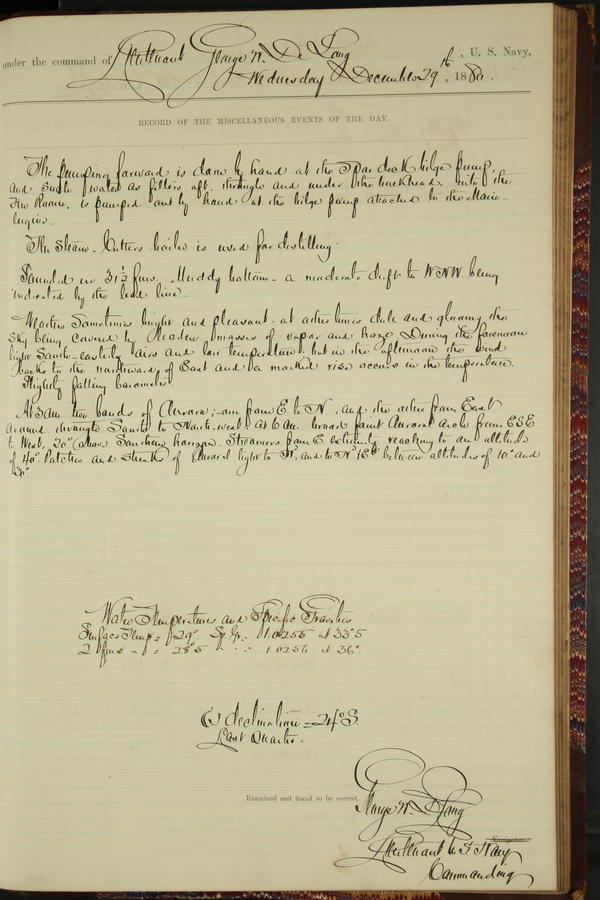 under the command of Lieutenant George W. De Long, U. S. Navy,
Wednesday December 29th, 1880.
RECORD OF THE MISCELLANEOUS EVENTS OF THE DAY.
The pumping forward is done by hand at the Spar deck bilge pump,
and such water as filters aft, through and under the bulkhead, into the
Fire Room, is pumped out by hand at the bilge pump attached to the Main
Engine.
The Steam-Cutters boiler is used for distilling.
Sounded in 31½ fms. Muddy bottom - a moderate drift to WNW. being
indicated by the lead line.
Weather Sometimes bright and pleasant, at other times dull and gloomy the
sky being covered by masses of vapor and haze. During the forenoon
light South-easterly airs and low temperature, but in the afternoon the wind
backs to the northward of East and a marked rise occurs in the temperature.
Slightly falling barometer.
At 3 am. two bands of Aurora; one from E to N. and the other from East
around through South to North-west. At 6 am. broad faint Auroral arch from ESE
to West, 20° above Southern horizon. Streamers from E extremity reaching to an altitude
of 40°. Patches and streaks of auroral light to N. and to N°Ed between altitudes of 10° and
Water Temperatures and Specific Gravities
Surface Temp = 29°. Sp Gr. 1.0255 at 33°5
2 fms " = 28°5 " " 1.0256 at 36°.
☾ declination = 24° S.
Last Quarter.
Examined and found to be correct.
George W. De Long
Navigator.
Lieutenant U.S. Navy
Commanding